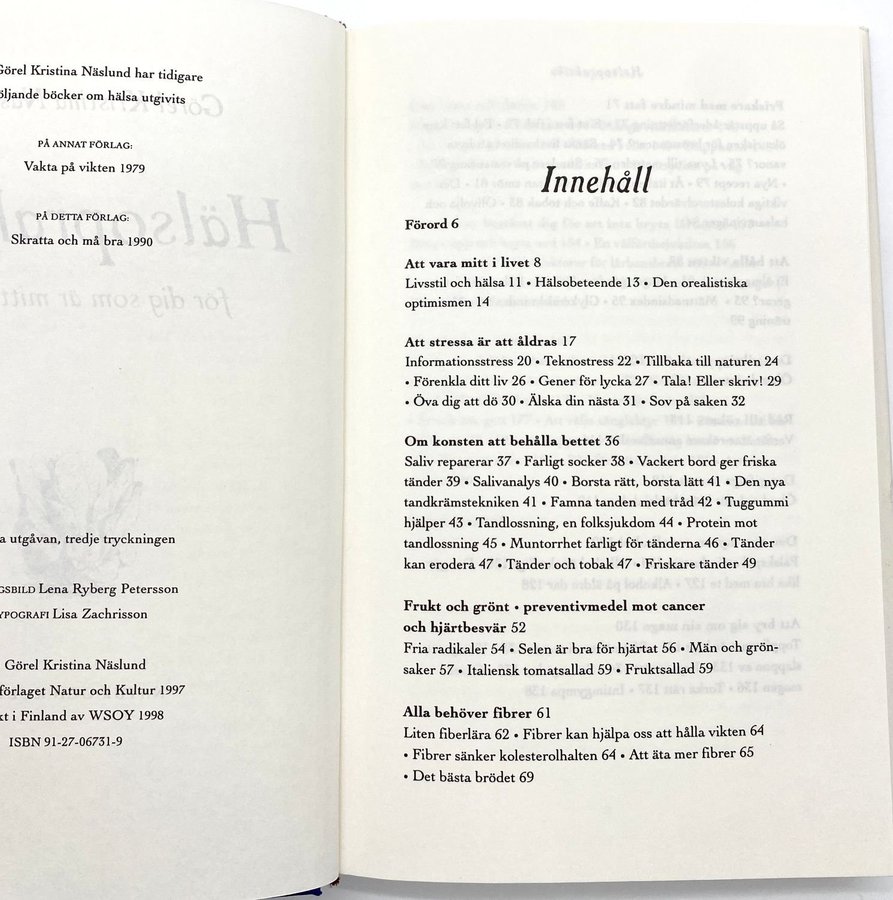 Görel Kristina Näslund har tidigare
öljande böcker om hälsa utgivits
PÅ ANNAT FÖRLAG:
Vakta på vikten 1979
PÅ DETTA FÖRLAG:
Skratta och må bra 1990
a utgåvan, tredje tryckningen
GSBILD Lena Ryberg Petersson
YPOGRAFI Lisa Zachrisson
Görel Kristina Näslund
förlaget Natur och Kultur 1997
kt i Finland av WSOY 1998
ISBN 91-27-06731-9
Innehåll
Förord 6
Att vara mitt i livet 8
Livsstil och hälsa 11 • Hälsobeteende 13 • Den orealistiska
optimismen 14
Att stressa är att åldras 17
Informationsstress 20 • Teknostress 22 • Tillbaka till naturen 24
• Förenkla ditt liv 26 • Gener för lycka 27 • Tala! Eller skriv! 29
• Öva dig att dö 30 • Älska din nästa 31 • Sov på saken 32
Om konsten att behålla bettet 36
Saliv reparerar 37 • Farligt socker 38 • Vackert bord ger friska
tänder 39 • Salivanalys 40 • Borsta rätt, borsta lätt 41 • Den nya
tandkrämstekniken 41 • Famna tanden med tråd 42 • Tuggummi
hjälper 43 • Tandlossning, en folksjukdom 44 • Protein mot
tandlossning 45 • Muntorrhet farligt för tänderna 46 • Tänder
kan erodera 47 • Tänder och tobak 47 • Friskare tänder 49
Frukt och grönt • preventivmedel mot cancer
och hjärtbesvär 52
Fria radikaler 54 • Selen är bra för hjärtat 56 • Män och grön-
saker 57 • Italiensk tomatsallad 59 • Fruktsallad 59
Alla behöver fibrer 61
Liten fiberlära 62 • Fibrer kan hjälpa oss att hålla vikten 64
• Fibrer sänker kolesterolhalten 64 • Att äta mer fibrer 65
• Det bästa brödet 69